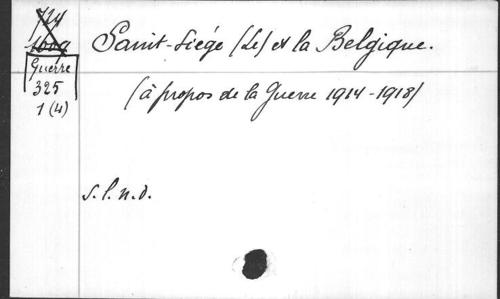 Saint-Siége (Le) et la Belgique.
Guerre
325
1 (4)
(à propos de la Guerre 1914-1918)
s.l.n.d.